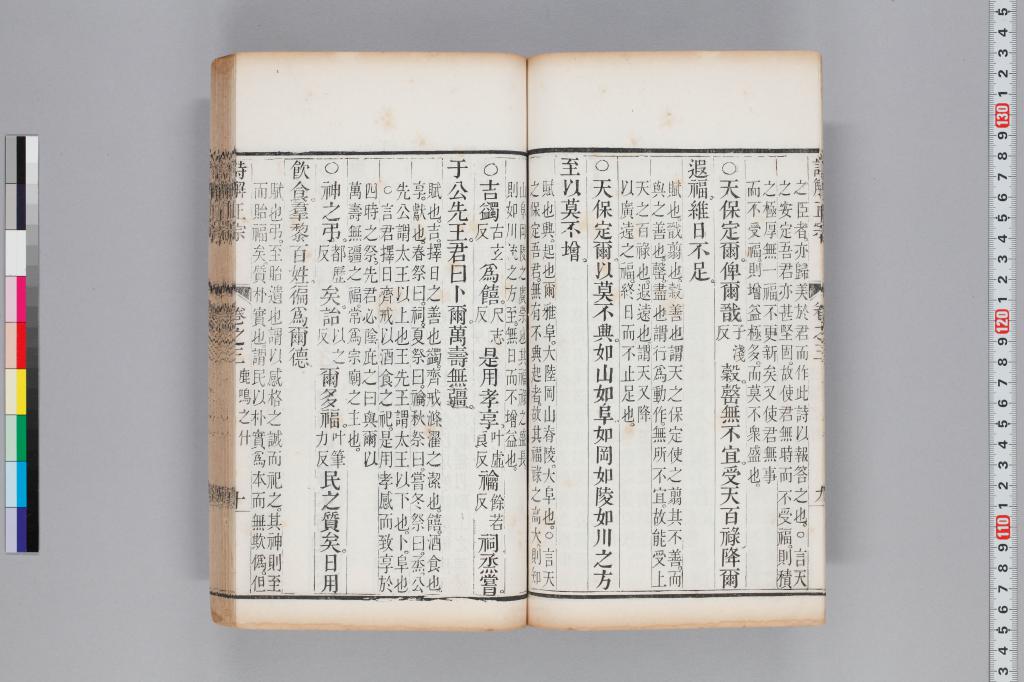 之臣者亦歸美於君而作此詩以報答之也。○言天
之安定吾君亦甚堅固故使君無時而不受福則積
之極厚無一福不更新矣又使君無事
而不受福則增益極多而莫不衆盛也。
○天保定爾。俾爾戩子淺反。穀罄無不宜。受天百祿。降爾
遐福維日不足。
賦也戩翦也穀善也謂天之保定使之翦其不善而
與之善也罄盡也謂行爲動作無所不宜。故能受上
天之百祿也。遐遠也謂天又降
以廣遠之福終日而不止足也。
○天保定爾。以莫不興。如山如阜。如岡如陵。如川之方
至以莫不增。
賦也。興起也爾雅阜。大陸岡山脊陵。大阜也。○言天
之保定吾君無有不興起者故其福祿之高大則如
則如川流之方至。無日而不增益也。
○吉蠲古玄反爲饎尺志反。是用孝享叶虛良反。禴餘若反祠烝嘗。
于公先王。君曰卜爾萬壽無疆。
賦也。吉。擇日之善也蠲。齊戒滌濯之潔也。饎。酒食也
享獻也。春祭曰。祠夏祭曰。禴秋祭曰。嘗冬祭曰。烝公
先公謂太王以上也王先王謂太王以下也。卜。阜也
○言君擇日齊戒以酒食之祀。是用孝感而致享於
四時之祭。先君必陰庇之曰與爾以
萬壽無疆之福常爲宗廟之主也。
○神之弔都歷反。矣詒以之反爾多福叶筆力反民之質矣。日用
飮食羣黎百姓徧爲爾德。
賦也弔。至詒遺也謂以感格之誠而祀之。其神則至
而詒福矣質朴實也謂民以朴實爲本而無欺僞。但
詩解正宗 卷之三 鹿鳴之什 十